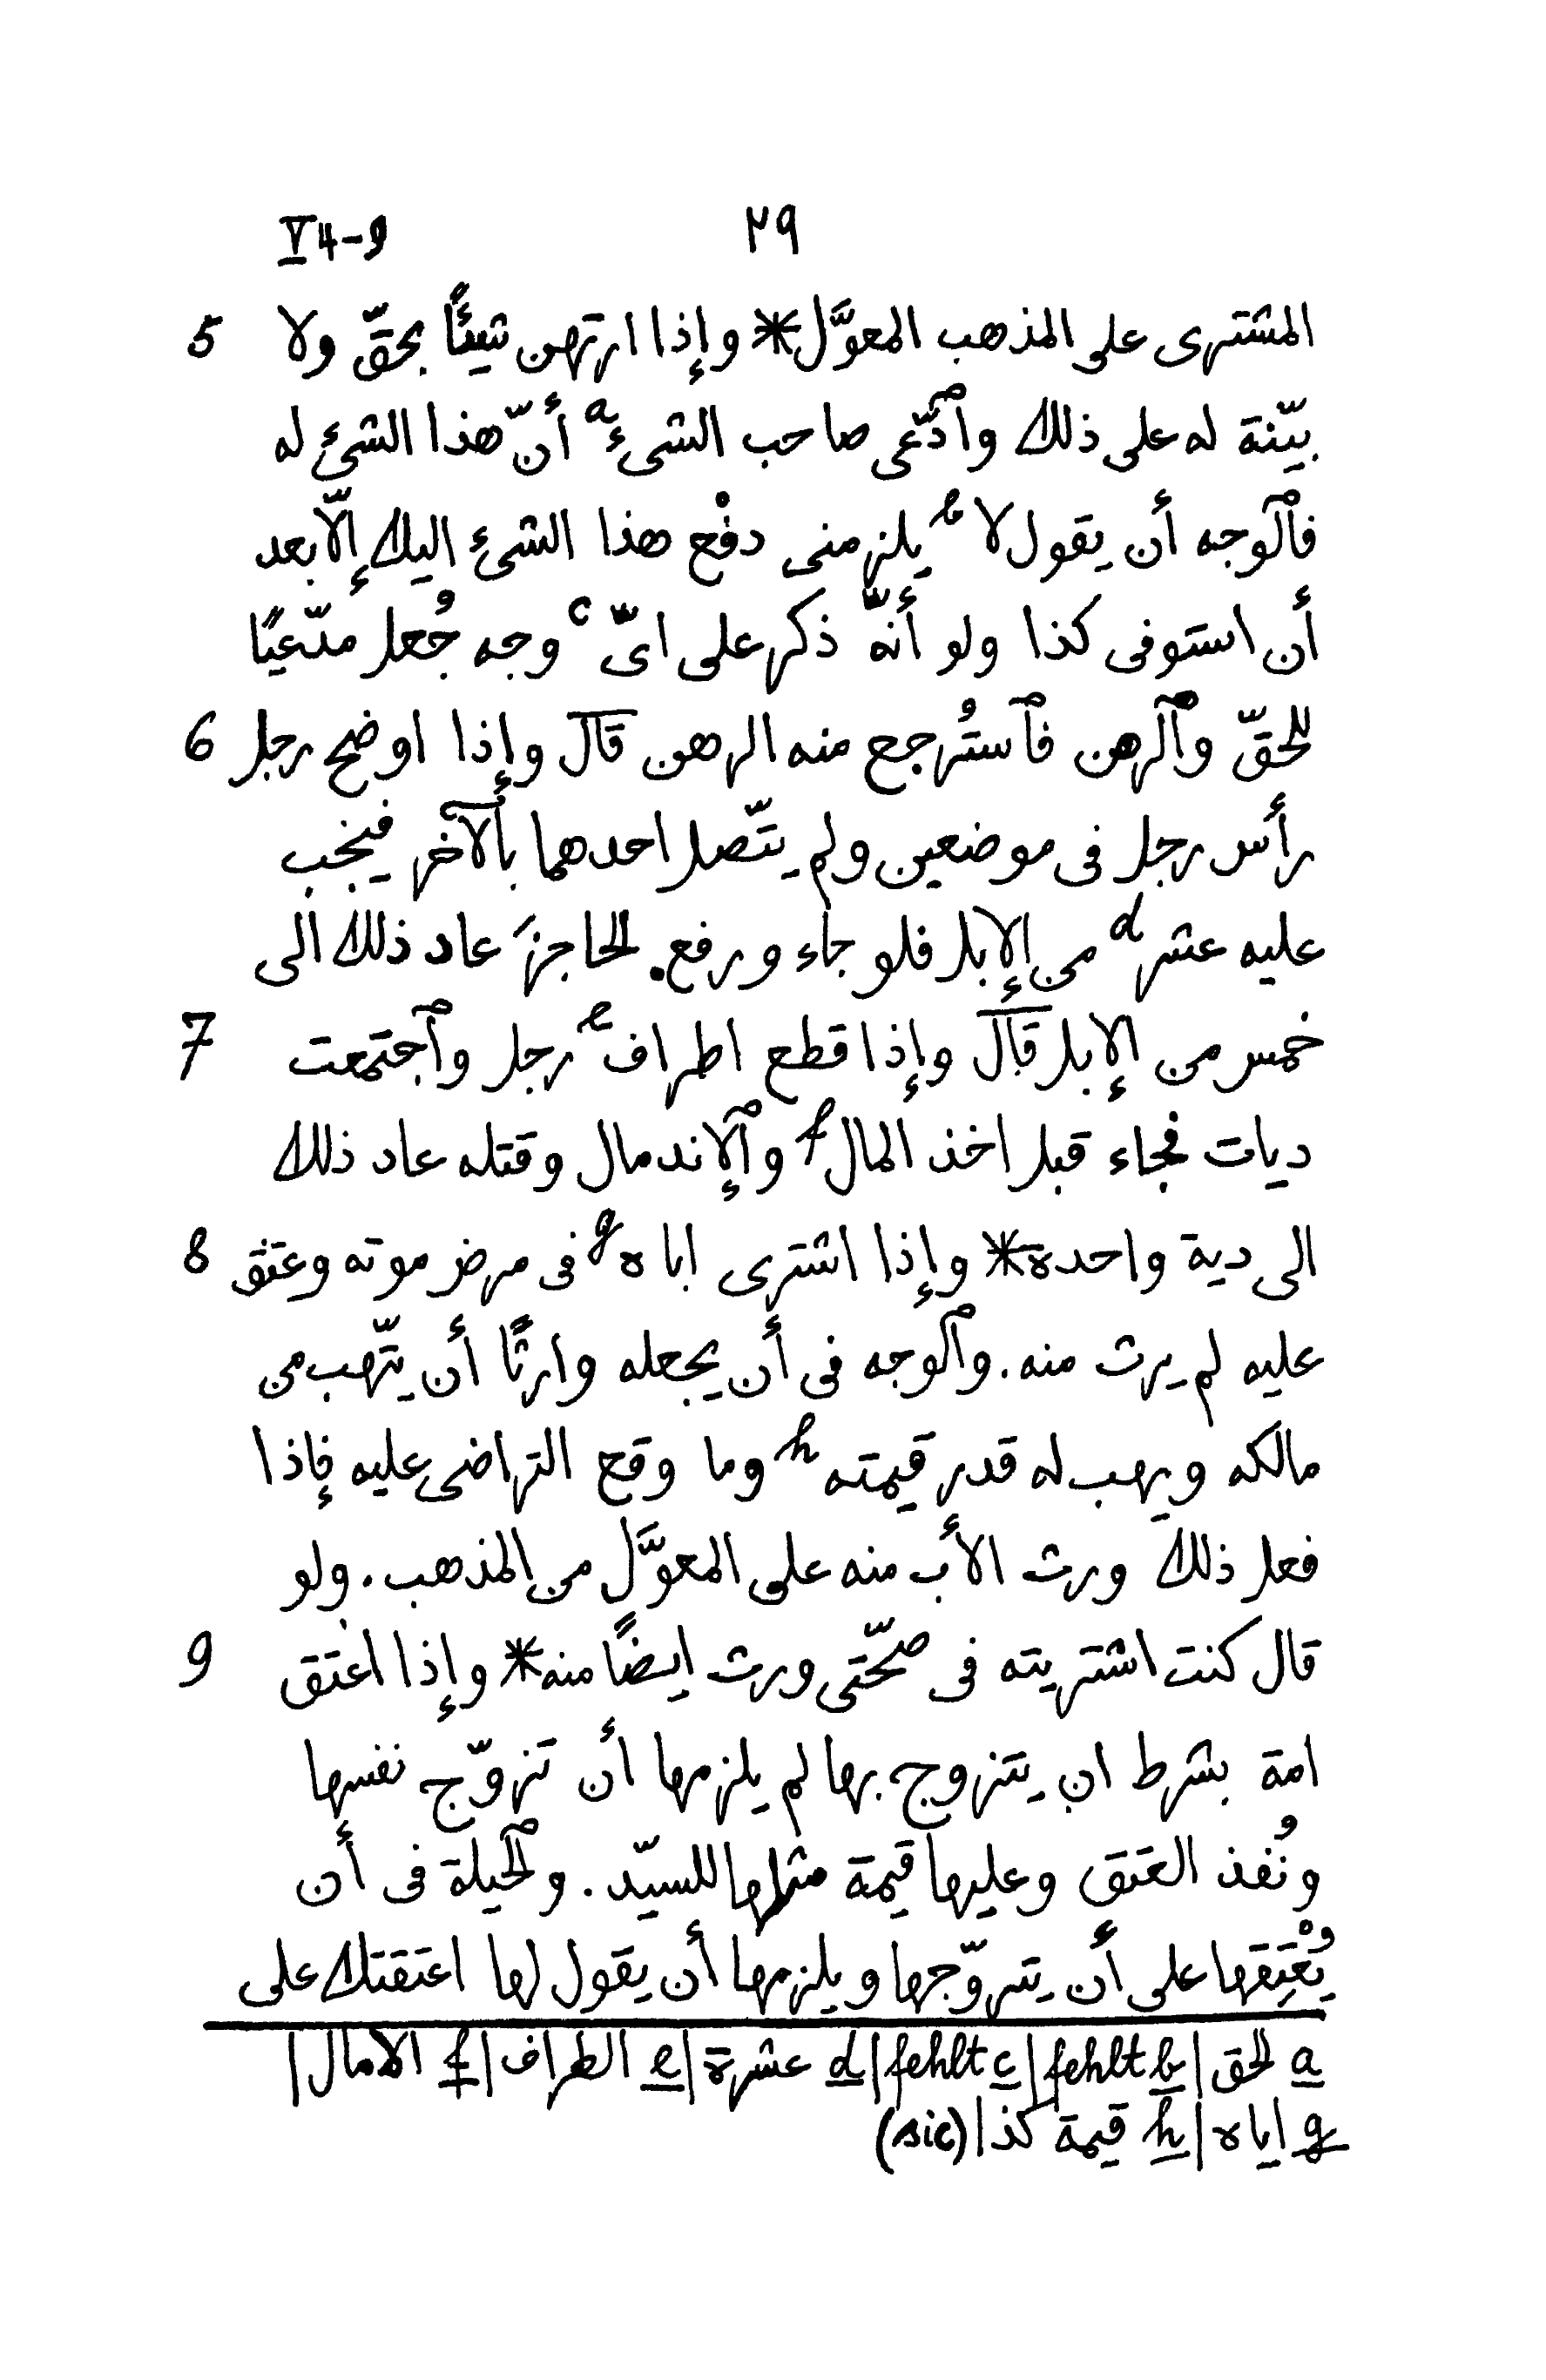 V 4-9 ٢٩
المشترى على المذهب المعوَّل* وإذا ارتهن شيئًا بحقّ ولا 5
بيّنة له على ذلك وٱدّعى صاحب الشىء a أنّ هذا الشىء له
فٱلوجه أن يقول لا b يلزمنى دفْع هذا الشىء اليك إلّا بعد
أن استوفى كذا ولو أنّه ذكر على اىّ c وجه جُعل مدّعيًا
للحقّ وٱلرهن فٱستُرجع منه الرهن قال وإذا اوضح رجل 6
رأس رجل فى موضعين ولم يتّصل احدهما بٱلآخر فيجب
عليه عشر d من الإبل فلو جاء ورفع الحاجزَ عاد ذلك الى
خمس من الإبل قال وإذا قطع اطراف e رجل وٱجتمعت 7
ديات فجاء قبل اخذ المال f وٱلإندمال وقتله عاد ذلك
الى دية واحدة* وإذا اشترى اباه g فى مرض موته وعتق 8
عليه لم يرث منه. وٱلوجه فى أن يجعله وارثًا أن يتّهب من
مالكه ويهب له قدر قيمته h وما وقع التراضى عليه فإذا
فعل ذلك ورث الأب منه على المعوَّل من المذهب. ولو
قال كنت اشتريته فى صحّتى ورث ايضًا منه* وإذا اعتق 9
امة بشرط ان يتزوج بها لم يلزمها أن تزوّج نفسها
ونُفذ العتق وعليها قيمة مثلها للسيّد. وٱلحيلة فى أن
يُعْتِقها على أن يتزوّجها ويلزمها أن يقول لها اعتقتك على
a الحق | b fehlt | c fehlt | d عشرة | e الطراف | f الامال |
g اياه | h قيمة كذا (sic)